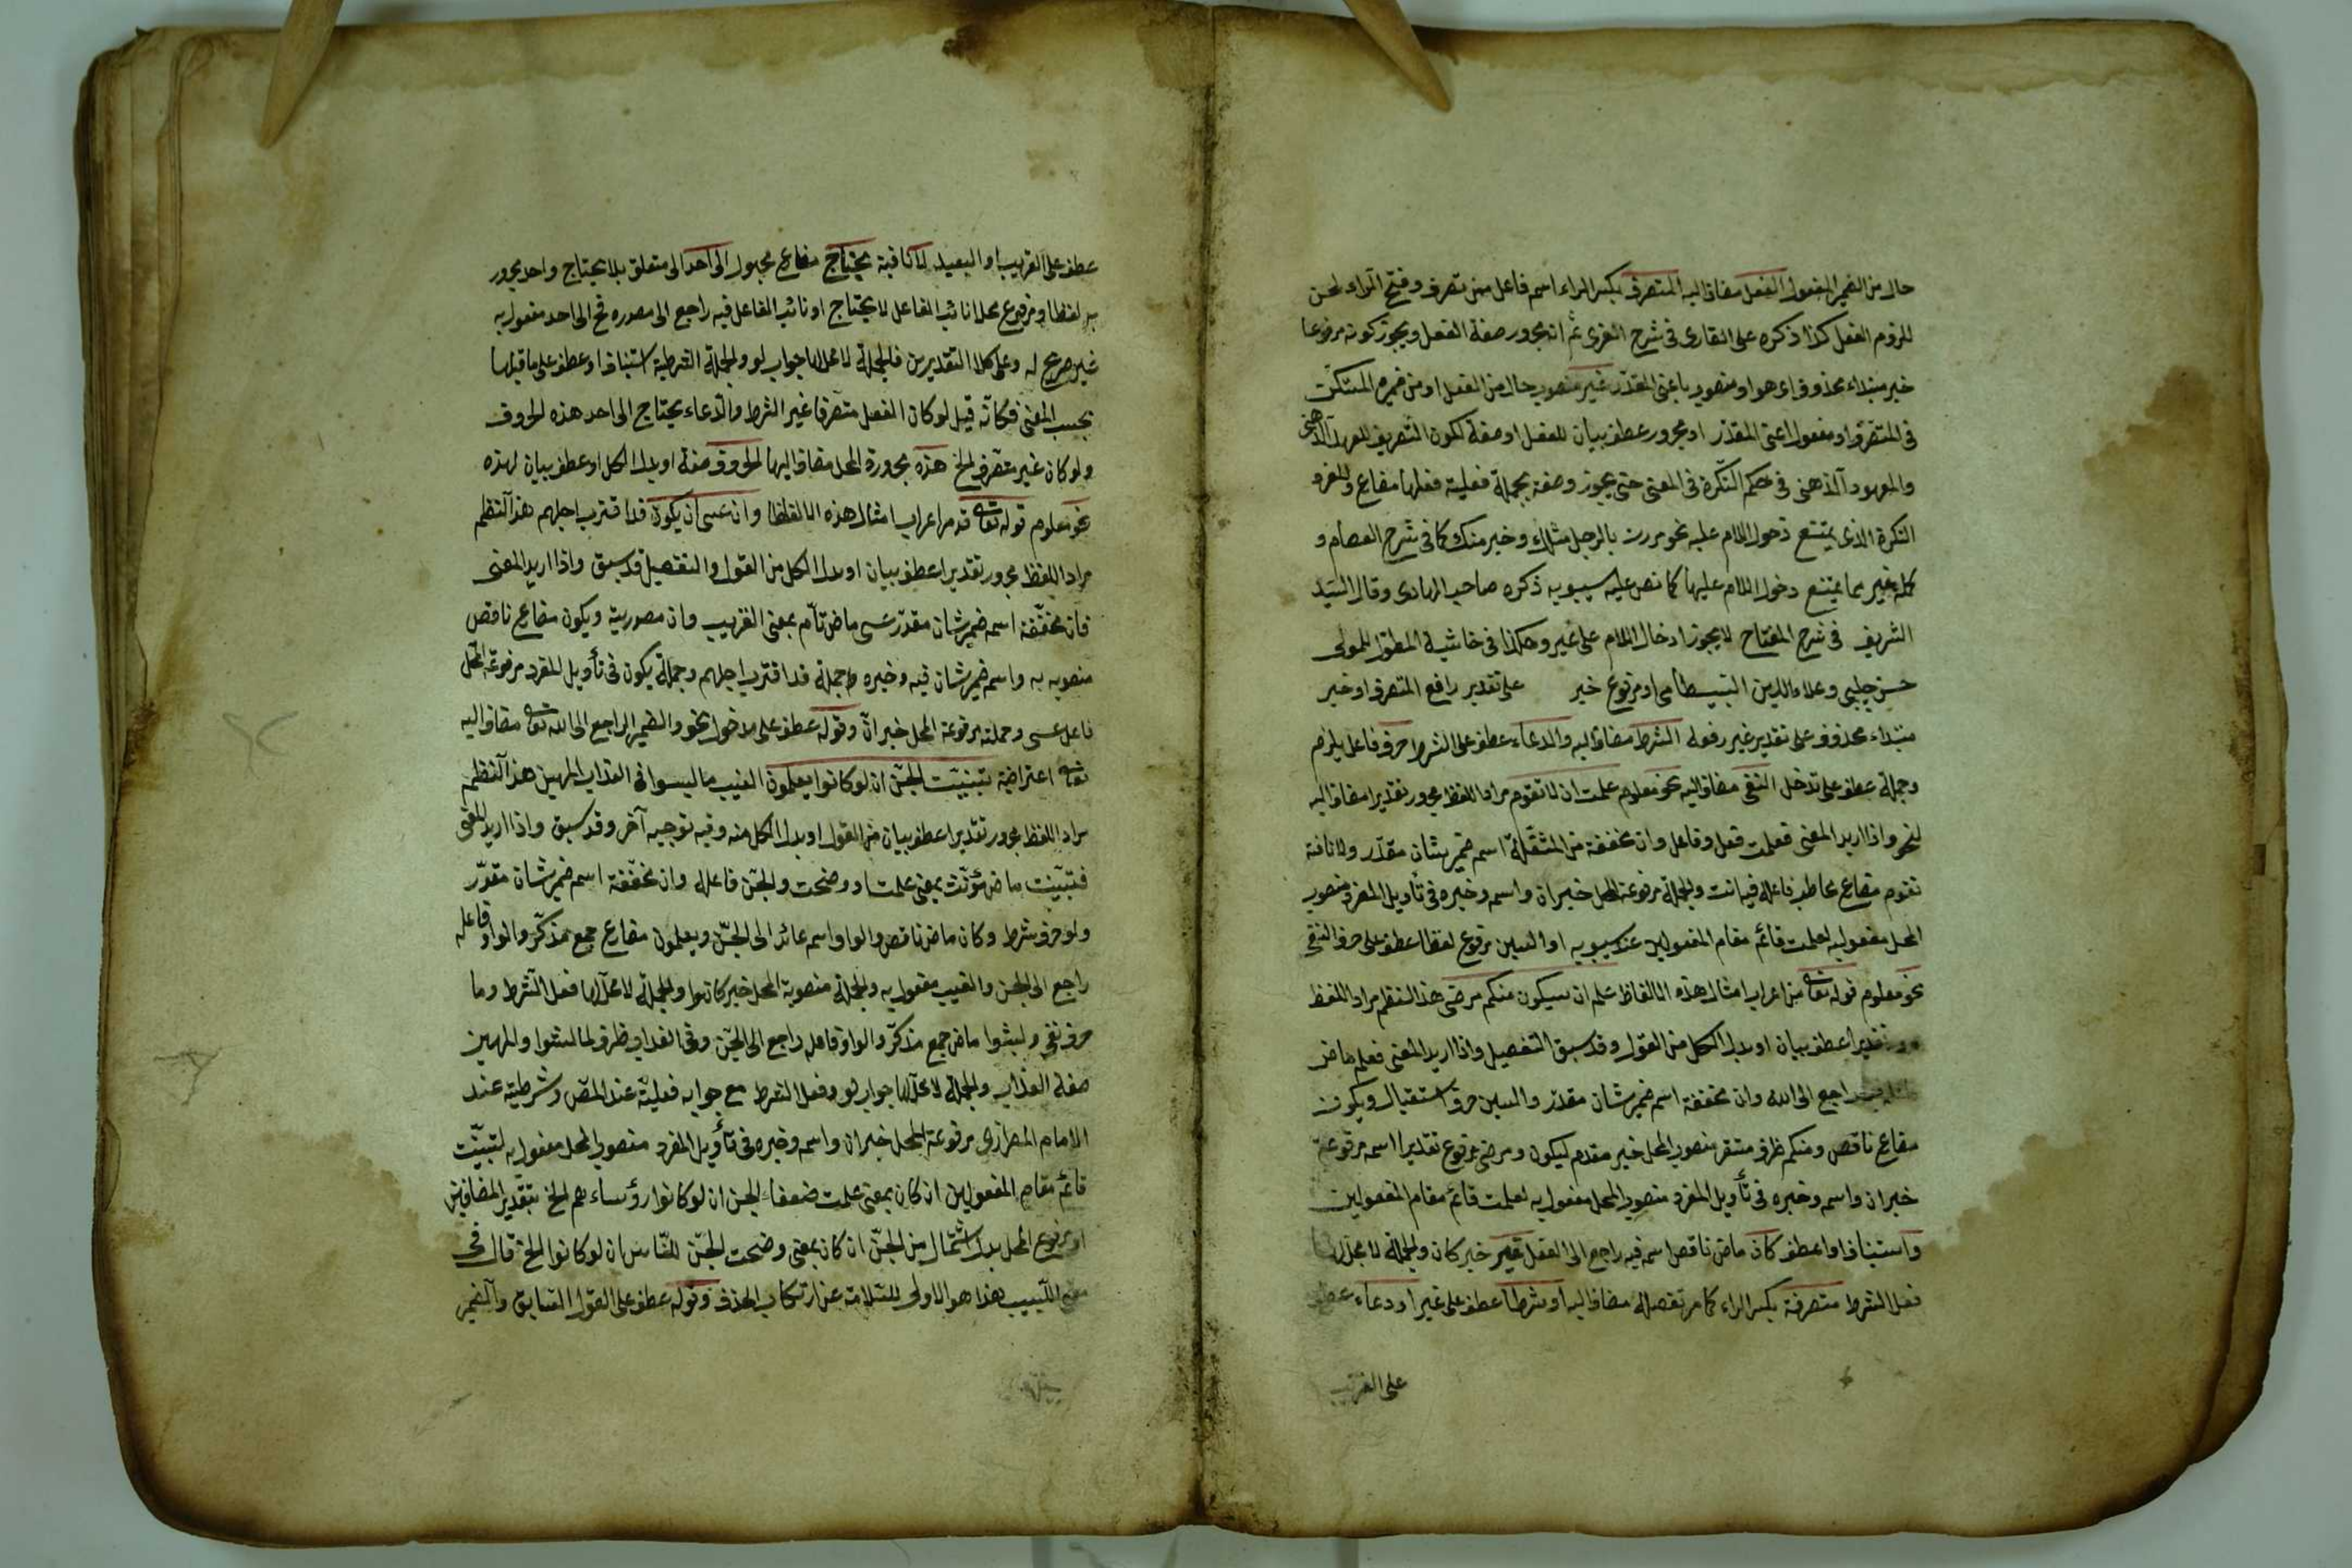 حال من الضمير المفعول الفعل مضاف اليه المتصرف بكسر الراء اسم فاعل من تصرف وفتح الراء لحن
للزوم الفعل كذا ذكره على القارى فى شرح العزى ثم انه مجرور صفة الفعل ويجوز كونه مرفوعا
خبر مبتداء محذوف اى هو او منصوب باعنى المقدر غير منصوب حال من الفعل او من ضميره المستكن
فى المتصرف او مفعول اعنى المقدر او مجرور عطف بيان للفعل او صفة لكون التعريف للعهد الذهنى
والمعهود الذهنى فى حكم النكرة فى المعنى حتى يجوز وصفه بجملة فعلية فعلها مضارع وللغرو
النكرة الذى يمتنع دخول اللام عليه نحو مررت بالرجل مثلك وخير منك كما فى شرح العصام و
كلمة غير مما يمتنع دخول اللام عليها كما نص عليه سيبويه ذكره صاحب الهادى وقال السيد
الشريف فى شرح المفتاح لا يجوز ادخال اللام على غير وهكذا فى حاشية المطول للمولى
حسن چلبى وعلاء الدين البسطامى او مرفوع خبر على تقدير رافع المتصرف او خبر
مبتداء محذوف على تقدير غير رفعه الشرط مضاف اليه والدعاء عطف على الشرط حرف فاعل يلزم
وجملة عطف على تدخل النفى مضاف اليه نحو معلوم علمت ان لا تقوم مراد اللفظ مجرور تقديرا مضاف اليه
لنحو واذا اريد المعنى فعلمت فعل وفاعل وان مخففة من المثقلة اسمه ضمير شان مقدر ولا نافية
تقوم مضارع مخاطب فاعله فيه انت والجملة مرفوعة المحل خبر ان واسمه وخبره فى تأويل المفرد منصوب
المحل مفعول به لعلمت قائم مقام المفعولين عند سيبويه او السين مرفوع لفظا عطف على حرف النفى
نحو معلوم قوله تعالى من اعراب امثال هذه الالفاظ علم ان سيكون منكم مرضى هذا النظم مراد اللفظ
تقديرا عطف بيان او بدل الكل من القول وقد سبق التفصيل واذا اريد المعنى فعلم ماض
راجع الى الله وان مخففة اسمه ضمير شان مقدر والسين حرف استقبال ويكون
مضارع ناقص ومنكم ظرف مستقر منصوب المحل خبر مقدم ليكون ومرضى مرفوع تقديرا اسمه مرفوعة
خبر ان واسمه وخبره فى تأويل المفرد منصوب المحل مفعول به لعلمت قائم مقام المفعولين
واستينافا او اعطف كان ماض ناقص اسمه فيه راجع الى الفعل غير خبر كان والجملة لا محل لها
فعل الشرط متصرفة بكسر الراء كما مر تفصيله مضاف اليه او شرطا عطف على غير او دعاء عطف
على القريب
عطف على القريب او البعيد لا كافية يحتاج مضارع مجهول الى احد الى متعلق بلا يحتاج واحد مجرور
به لفظا ومرفوع محلا نائب الفاعل لا يحتاج او نائب الفاعل فيه راجع الى مصدره فح الى احد مفعول به
غير صريح له وعلى كلا التقديرين فالجملة لا محل لها جواب لو والجملة الشرطية استينافا او عطف على ما قبلها
بحسب المعنى فكأنه قيل لو كان الفعل متصرفا غير الشرط والدعاء يحتاج الى احد هذه الحروف
ولو كان غير متصرف الخ هذه مجرورة المحل مضاف اليها الحروف صفة او بدل الكل او عطف بيان لهذه
نحو معلوم قوله تعالى قد مر اعراب امثال هذه الالفاظ وان عسى ان يكون قد اقترب اجلهم هذا النظم
مراد اللفظ مجرور تقديرا عطف بيان او بدل الكل من القول والتفصيل قد سبق واذا اريد المعنى
فان مخففة اسمه ضمير شان مقدر عسى ماض تام بمعنى القريب وان مصدرية ويكون مضارع ناقص
منصوبه به واسمه ضمير شان فيه وخبره جملة قد اقترب اجلهم وجملة يكون فى تأويل المفرد مرفوعة المحل
فاعل عسى وجملته مرفوعة المحل خبر ان وقوله عطف على مدخول نحو والضمير الراجع الى الله تعالى مضاف اليه
تعالى اعتراضية تبينت الجن ان لو كانوا يعلمون الغيب ما لبثوا فى العذاب المهين هذا النظم
مراد اللفظ مجرور تقديرا عطف بيان من القول او بدل الكل منه وفيه توجيه آخر وقد سبق واذا اريد المعنى
فتبينت ماض مؤنث بمعنى علمت او وضحت والجن فاعله وان مخففة اسمه ضمير شان مقدر
ولو حرف شرط وكان ماض ناقص والواو اسمه عائد الى الجن ويعلمون مضارع جمع مذكر والواو فاعله
راجع الى الجن والغيب مفعول به والجملة منصوبة المحل خبر كانوا والجملة لا محل لها فعل الشرط وما
حرف نفى ولبثوا ماض جمع مذكر والواو فاعله راجع الى الجن وفى العذاب ظرف لما لبثوا والمهين
صفة العذاب والجملة لا محل لها جواب لو وفعل الشرط مع جوابه فعلية عند المص وشرطية عند
الامام المطرزى مرفوعة المحل خبر ان واسمه وخبره فى تأويل المفرد منصوب المحل مفعول به لتبينت
قائم مقام المفعولين ان كان بمعنى علمت ضعفاء الجن ان لو كانوا رؤساءهم الخ بتقدير المضافين
او مرفوع المحل بدل اشتمال من الجن ان كان بمعنى وضحت الجن للناس ان لو كانوا الخ قال فى
مغنى اللبيب هذا هو الاولى للسلامة عن ارتكاب الحذف وقوله عطف على القول السابق والضمير